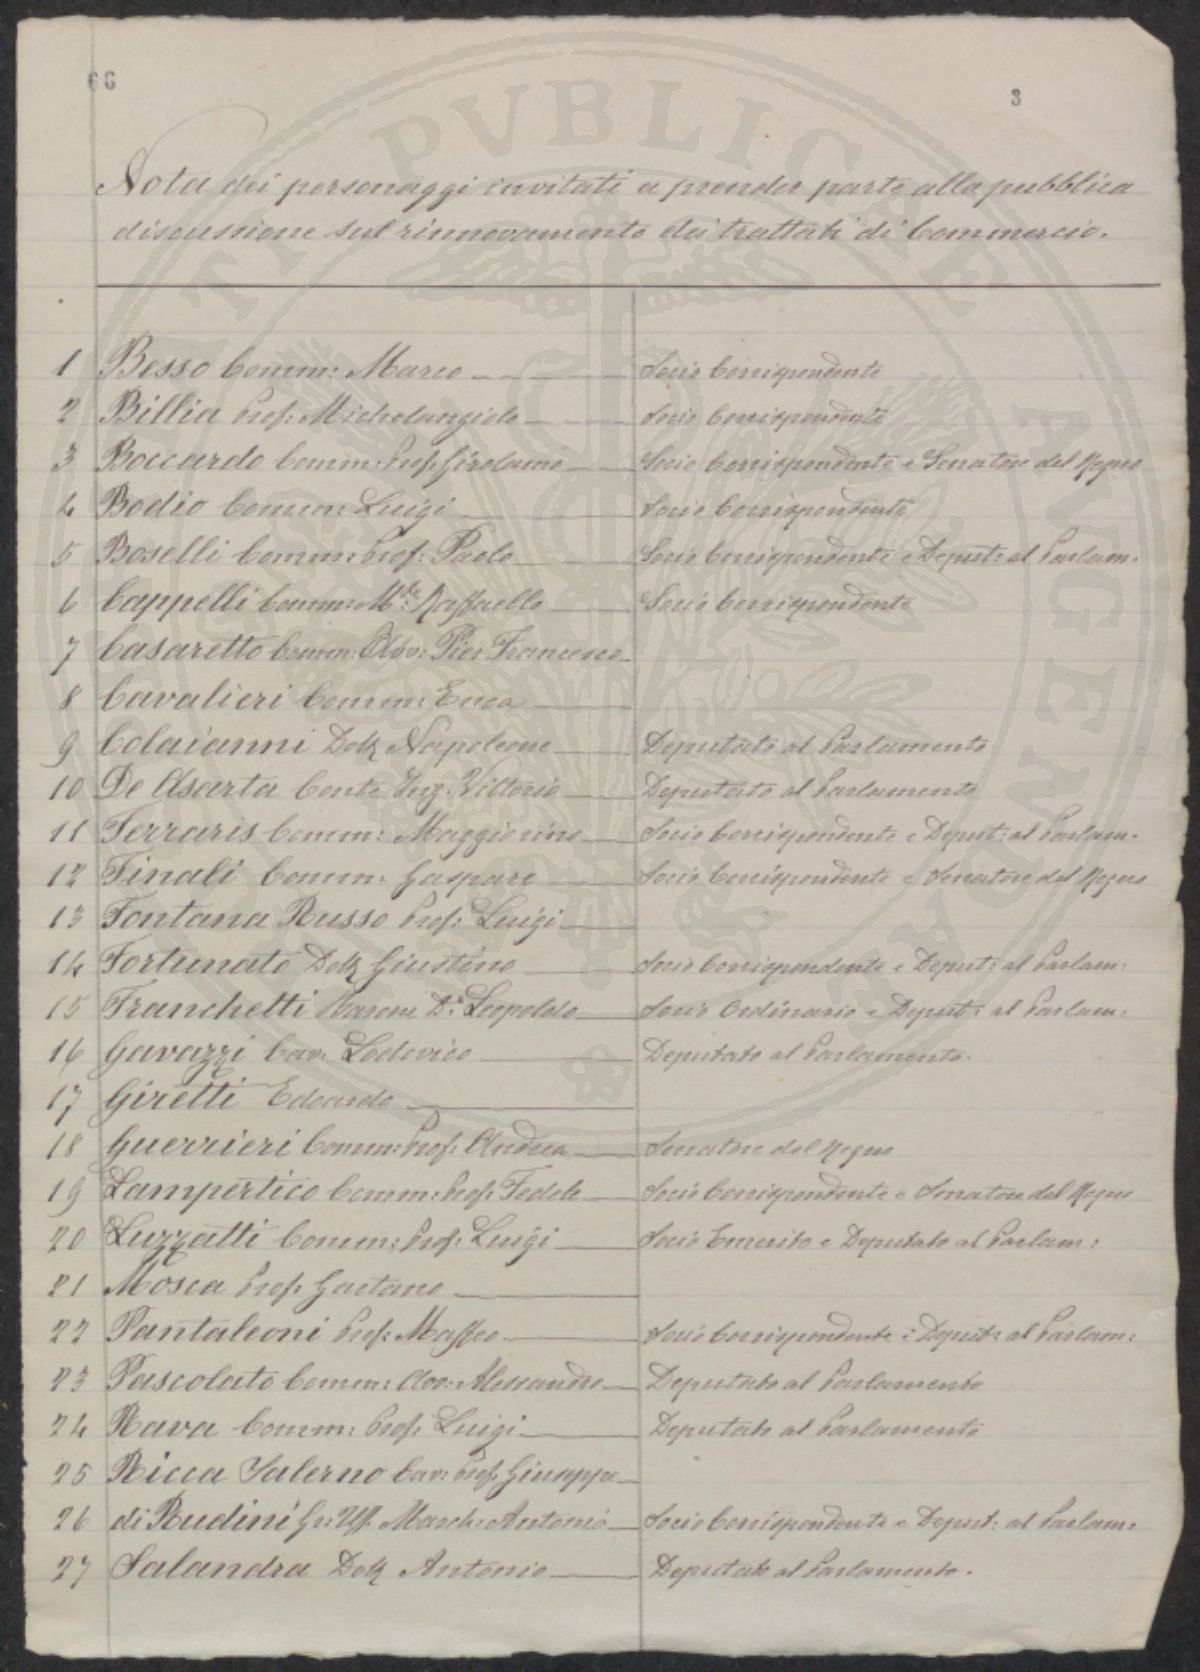 66
3
Nota dei personaggi invitati a prender parte alla pubblica
discussione sul rinnovamento dei trattati di Commercio.
1 Besso Comm: Marco Socio Corrispondente
2 Billia Prof: Michelangiolo Socio Corrispondente
3 Boccardo Comm: Prof: Girolamo Socio Corrispondente e Senatore del Regno
4 Bodio Comm: Luigi Socio Corrispondente
5 Boselli Comm: Prof: Paolo Socio Corrispondente e Deput: al Parlam.
6 Cappelli Comm: M.se Raffaello Socio Corrispondente
7 Casaretto Comm: Avv: Pier Francesco
8 Cavalieri Comm: Enea
9 Colaianni Dott Napoleone Deputato al Parlamento
10 De Asarta Conte Ing. Vittorio Deputato al Parlamento
11 Ferraris Comm: Maggiorino Socio Corrispondente e Deput: al Parlam.
12 Finali Comm: Gaspare Socio Corrispondente e Senatore del Regno
13 Fontana Russo Prof: Luigi
14 Fortunato Dott Giustino Socio Corrispondente e Deput: al Parlam:
15 Franchetti Barone D.r Leopoldo Socio Ordinario e Deput: al Parlam:
16 Gavazzi Cav: Lodovico Deputato al Parlamento.
17 Giretti Edoardo
18 Guerrieri Comm: Prof: Andrea Senatore del Regno
19 Lampertico Comm: Prof: Fedele Socio Corrispondente e Senatore del Regno
20 Luzzatti Comm: Prof: Luigi Socio Emerito e Deputato al Parlam:
21 Mosca Prof: Gaetano
22 Pantaleoni Prof: Maffeo Socio Corrispondente e Deput: al Parlam:
23 Pascolato Comm: Avv: Alessandro Deputato al Parlamento
24 Rava Comm: Prof: Luigi Deputato al Parlamento
25 Ricca Salerno Cav: Prof: Giuseppe
26 di Rudinì Gr: Uff. March: Antonio Socio Corrispondente e Deput: al Parlam:
27 Salandra Dott Antonio Deputato al Parlamento.